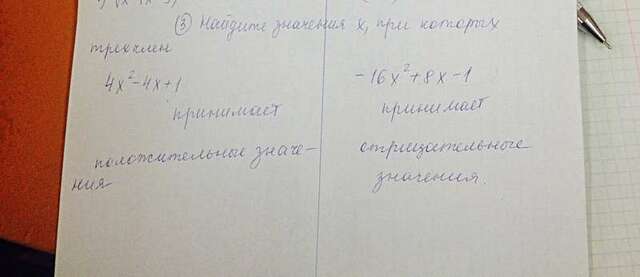 ③ Найдите значения x, при которых
трехчлен
4x²-4x+1
принимает
положительные значе-
ния
-16x²+8x-1
принимает
отрицательные
значения.